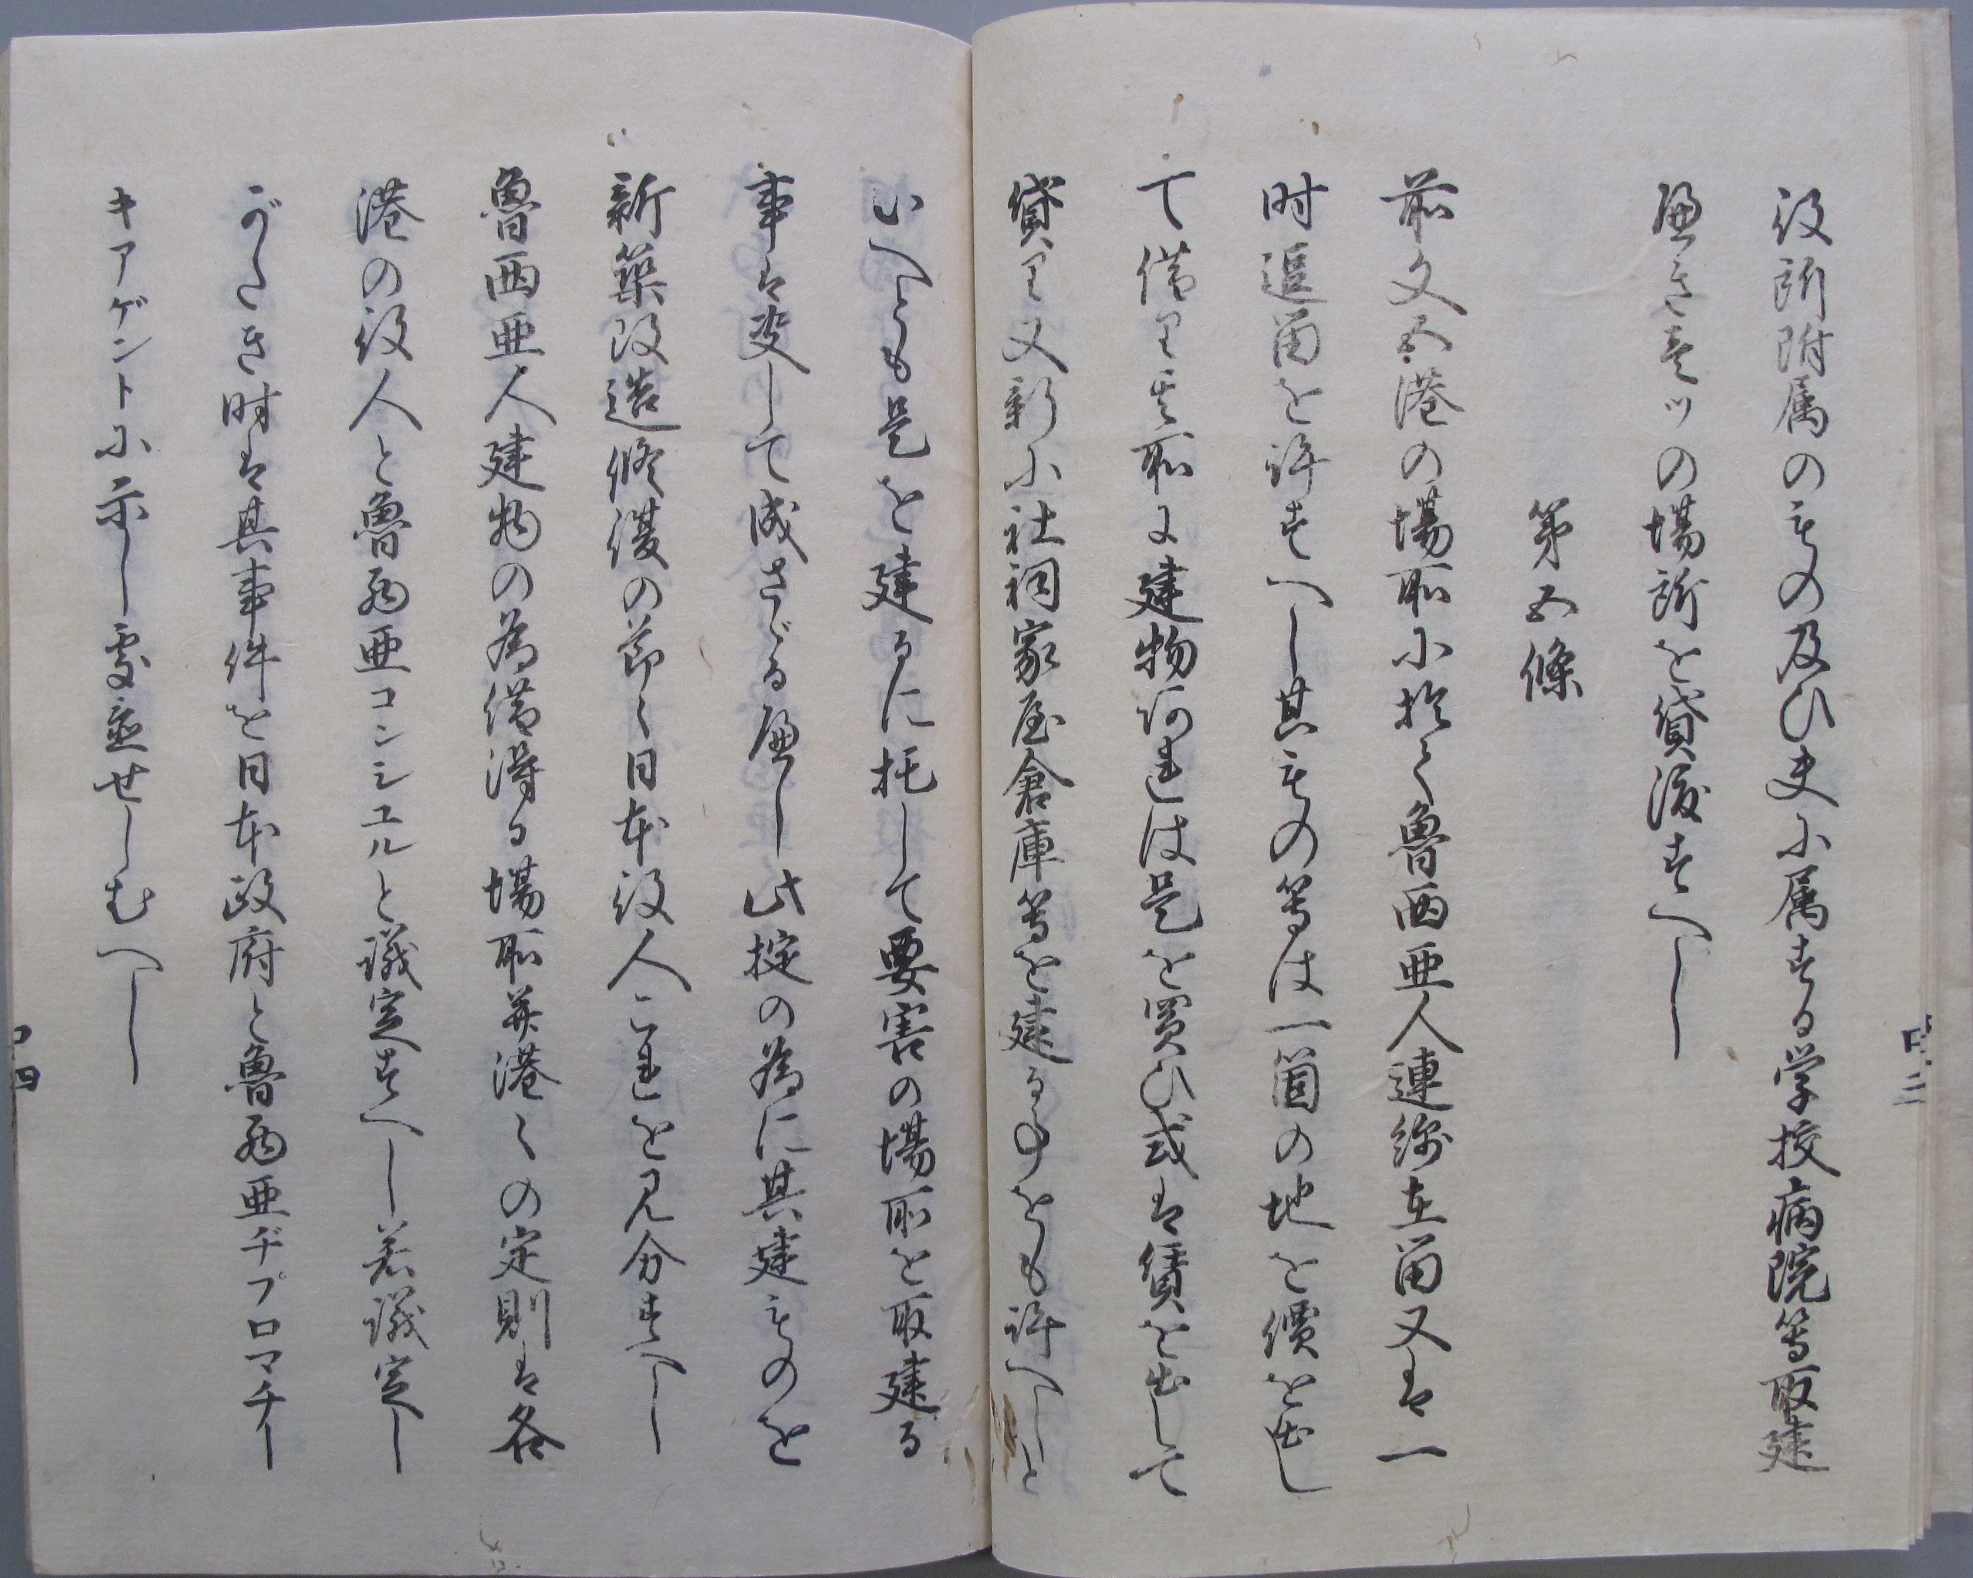 役所附属のもの及ひ夫に属する学校病院等取建
へき壱ツの場所を貸渡すへし
第五條
前文五港の場所に於て魯西亜人連綿在留又は一
時逗留を許すへし其もの等は一箇の地を價を出し
て借り其所に建物あれは是を買ひ或は賃を出して
貸り又新に社祠家屋倉庫等を建る事をも許へしと
いへとも是を建るに托して要害の場所を取建る
事は決して成さゞるへし此掟の為に其建ものを
新築改造修復の節〻日本役人これを見分すへし
魯西亜人建物の為借得る場所并港〻の定則は各
港の役人と魯西亜コンシュルと議定すへし若議定し
がたき時は其事件を日本政府と魯西亜ヂプロマチー
キアゲントに示し處置せしむへし